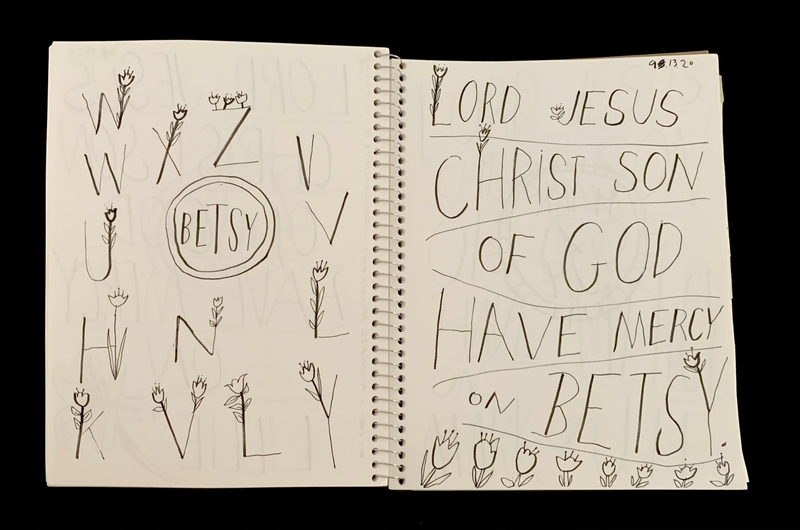 W
W X Z V
BETSY
U V
H N L
K V L Y
9.13.20
LORD JESUS
CHRIST SON
OF GOD
HAVE MERCY
ON BETSY